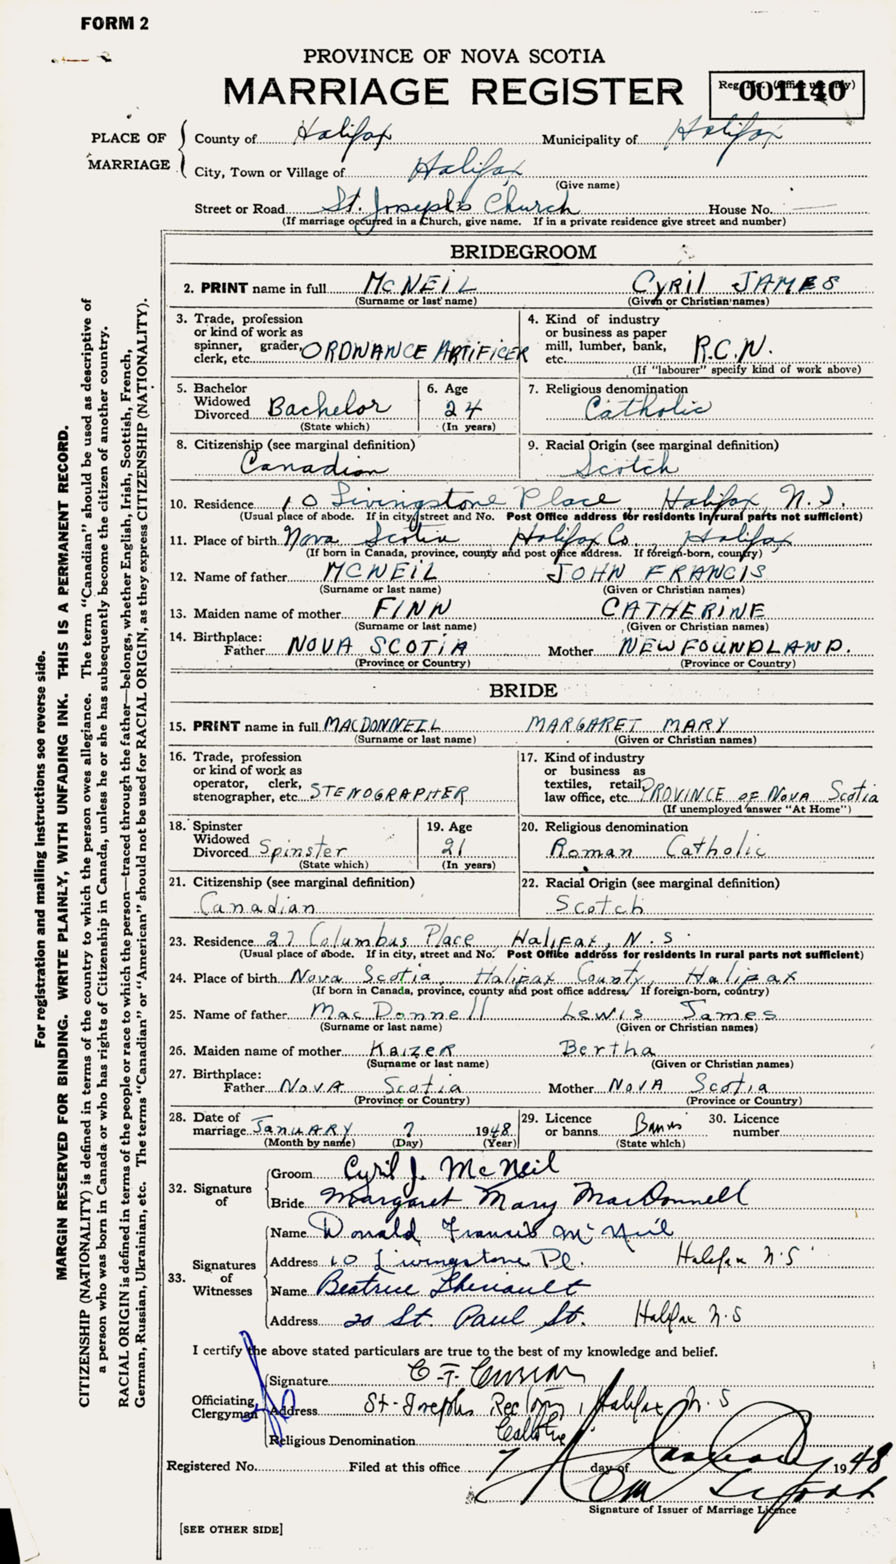 FORM 2
PROVINCE OF NOVA SCOTIA
MARRIAGE REGISTER
Reg. No. (Office use only)
001140
PLACE OF MARRIAGE
County of Halifax Municipality of Halifax
City, Town or Village of Halifax
(Give name)
Street or Road St. Joseph's Church House No.
(If marriage occurred in a Church, give name. If in a private residence give street and number)
BRIDEGROOM
2. PRINT name in full McNEIL CYRIL JAMES
(Surname or last name) (Given or Christian names)
3. Trade, profession or kind of work as spinner, grader, clerk, etc. ORDNANCE ARTIFICER
4. Kind of industry or business as paper mill, lumber, bank, etc. R.C.N.
(If "labourer" specify kind of work above)
5. Bachelor Widowed Divorced Bachelor
(State which)
6. Age 24
(In years)
7. Religious denomination
Catholic
8. Citizenship (see marginal definition)
Canadian
9. Racial Origin (see marginal definition)
Scotch
10. Residence 10 Livingstone Place Halifax N.S.
(Usual place of abode. If in city, street and No. Post Office address for residents in rural parts not sufficient)
11. Place of birth Nova Scotia Halifax Co. Halifax
(If born in Canada, province, county and post office address. If foreign-born, country)
12. Name of father MCNEIL JOHN FRANCIS
(Surname or last name) (Given or Christian names)
13. Maiden name of mother FINN CATHERINE
(Surname or last name) (Given or Christian names)
14. Birthplace:
Father NOVA SCOTIA Mother NEWFOUNDLAND.
(Province or Country) (Province or Country)
BRIDE
15. PRINT name in full MACDONNELL MARGARET MARY
(Surname or last name) (Given or Christian names)
16. Trade, profession or kind of work as operator, clerk, stenographer, etc. STENOGRAPHER
17. Kind of industry or business as textiles, retail, law office, etc. PROVINCE OF NOVA SCOTIA
(If unemployed answer "At Home")
18. Spinster Widowed Divorced Spinster
(State which)
19. Age 21
(In years)
20. Religious denomination
Roman Catholic
21. Citizenship (see marginal definition)
Canadian
22. Racial Origin (see marginal definition)
Scotch
23. Residence 27 Columbus Place, Halifax, N.S.
(Usual place of abode. If in city, street and No. Post Office address for residents in rural parts not sufficient)
24. Place of birth Nova Scotia, Halifax County, Halifax
(If born in Canada, province, county and post office address. If foreign-born, country)
25. Name of father MacDonnell Lewis James
(Surname or last name) (Given or Christian names)
26. Maiden name of mother Kaizer Bertha
(Surname or last name) (Given or Christian names)
27. Birthplace:
Father Nova Scotia Mother Nova Scotia
(Province or Country) (Province or Country)
28. Date of marriage January 7 1948
(Month by name) (Day) (Year)
29. Licence or banns Banns
(State which)
30. Licence number
32. Signature of
Groom Cyril J. McNeil
Bride Margaret Mary MacDonnell
33. Signatures of Witnesses
Name Donald Francis McNeil
Address 10 Livingstone Pl. Halifax N.S.
Name Beatrice Theriault
Address 20 St. Paul St. Halifax N.S
I certify the above stated particulars are true to the best of my knowledge and belief.
Officiating Clergyman
Signature C. F.
Address St. Josephs Rectory, Halifax N.S
Religious Denomination Catholic
Registered No. Filed at this office 7 day of January 1948
Signature of Issuer of Marriage Licence
[SEE OTHER SIDE]
For registration and mailing instructions see reverse side.
MARGIN RESERVED FOR BINDING. WRITE PLAINLY, WITH UNFADING INK. THIS IS A PERMANENT RECORD.
CITIZENSHIP (NATIONALITY) is defined in terms of the country to which the person owes allegiance. The term "Canadian" should be used as descriptive of
a person who was born in Canada or who has rights of Citizenship in Canada, unless he or she has subsequently become the citizen of another country.
RACIAL ORIGIN is defined in terms of the people or race to which the person—traced through the father—belongs, whether English, Irish, Scottish, French,
German, Russian, Ukrainian, etc. The terms "Canadian" or "American" should not be used for RACIAL ORIGIN, as they express CITIZENSHIP (NATIONALITY).